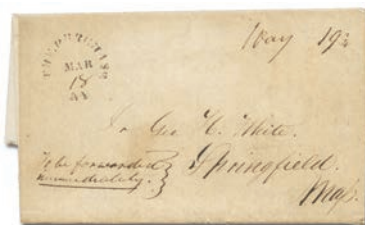 MAR
18
Way 19¾
To Geo H. White.
Springfield.
Mass.
To be forwarded
immediately.